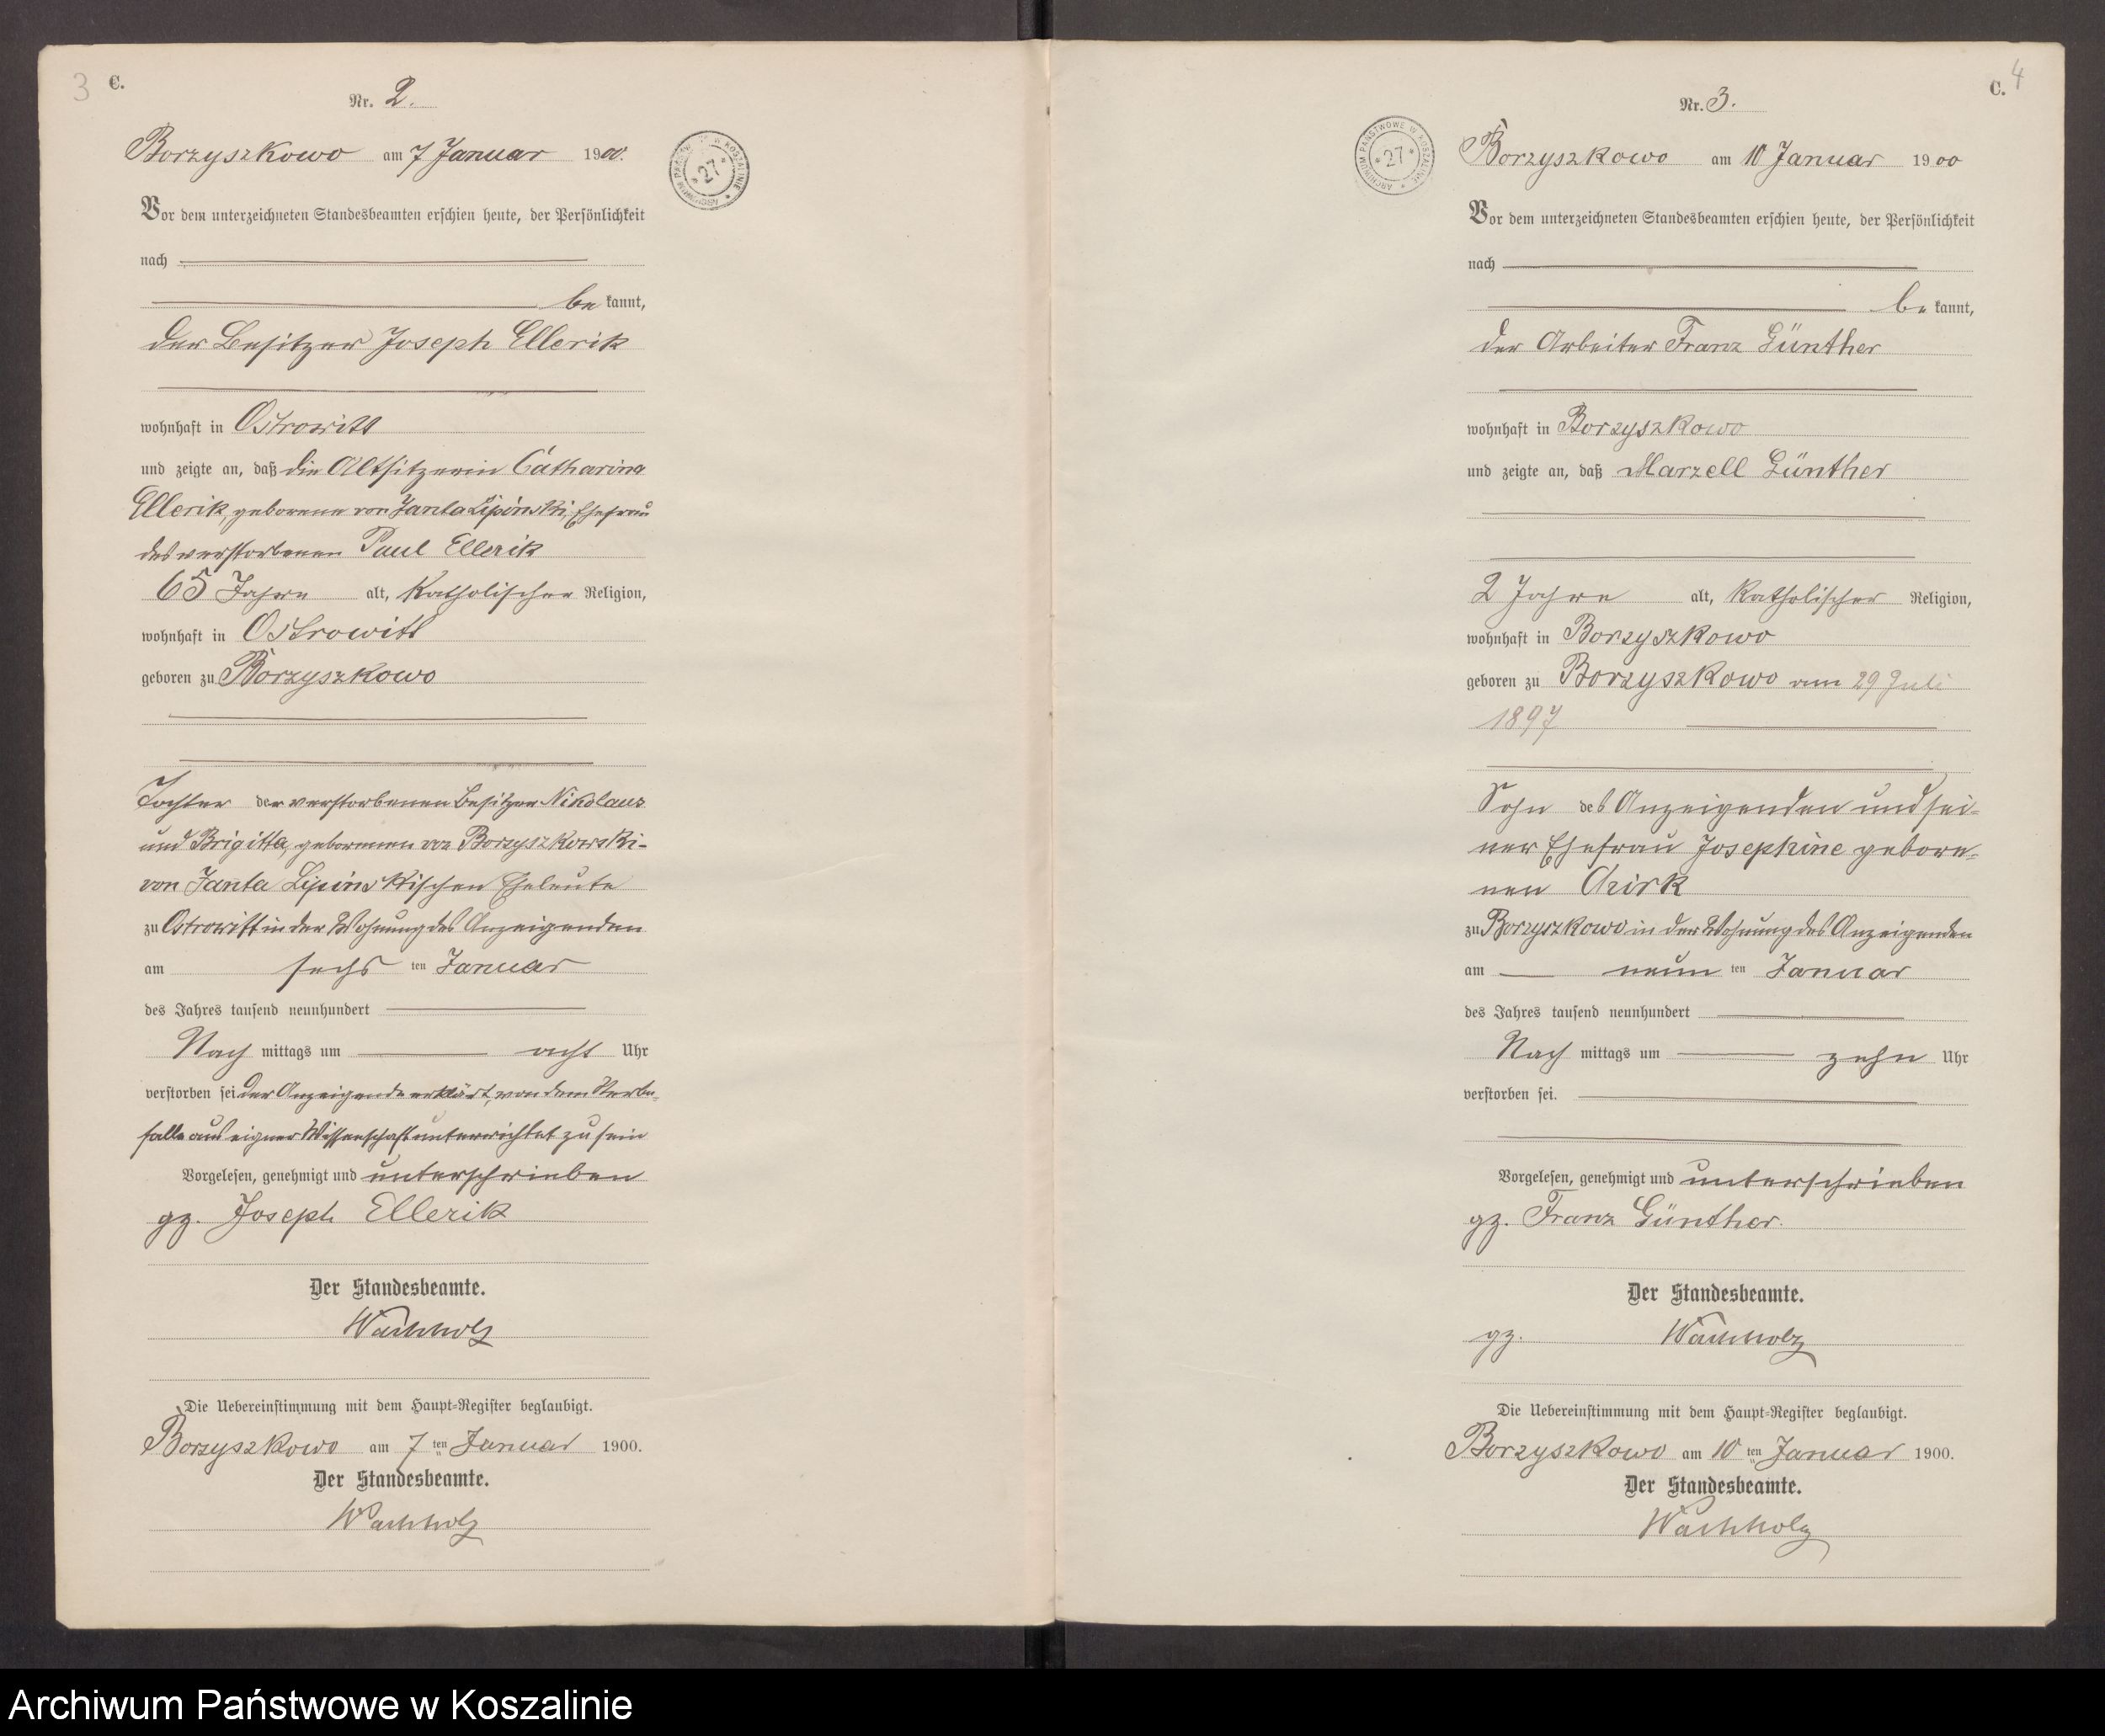 3
C.
Nr. 2.
Borzyszkowo am 7 Januar 1900.
ARCHIWUM PAŃSTWOWE W KOSZALINIE * 27 *
Vor dem unterzeichneten Standesbeamten erschien heute, der Persönlichkeit
nach
be kannt,
der Besitzer Joseph Ellerik
wohnhaft in Ostrowitt
und zeigte an, daß die Altsitzerin Catharina
Ellerik, geborene von Janta Lipinski, Ehefrau
des verstorbenen Paul Ellerik
65 Jahre alt, katholischer Religion,
wohnhaft in Ostrowitt
geboren zu Borzyszkowo
Tochter der verstorbenen Besitzer Nikolaus
und Brigitta, geborenen von Borzyszkowski-
von Janta Lipinskischen Eheleute
zu Ostrowitt in der Wohnung des Anzeigenden
am sechs ten Januar
des Jahres tausend neunhundert
Nach mittags um acht Uhr
verstorben sei der Anzeigende erklärt, von dem Sterbe-
falle aus eigner Wissenschaft unterrichtet zu sein
Vorgelesen, genehmigt und unterschrieben
gz. Joseph Ellerik
Der Standesbeamte.
Wachholz
Die Uebereinstimmung mit dem Haupt-Register beglaubigt.
Borzyszkowo am 7 ten Januar 1900.
Der Standesbeamte.
Wachholz
C. 4
Nr. 3.
ARCHIWUM PAŃSTWOWE W KOSZALINIE * 27 *
Borzyszkowo am 10 Januar 1900
Vor dem unterzeichneten Standesbeamten erschien heute, der Persönlichkeit
nach
be kannt,
der Arbeiter Franz Günther
wohnhaft in Borzyszkowo
und zeigte an, daß Marzell Günther
2 Jahre alt, katholischer Religion,
wohnhaft in Borzyszkowo
geboren zu Borzyszkowo am 29 Juli
1897
Sohn des Anzeigenden und sei-
ner Ehefrau Josephine gebore-
nen
zu Borzyszkowo in der Wohnung des Anzeigenden
am neun ten Januar
des Jahres tausend neunhundert
Nach mittags um zehn Uhr
verstorben sei.
Vorgelesen, genehmigt und unterschrieben
gz. Franz Günther.
Der Standesbeamte.
gz. Wachholz
Die Uebereinstimmung mit dem Haupt-Register beglaubigt.
Borzyszkowo am 10 ten Januar 1900.
Der Standesbeamte.
Wachholz
Archiwum Państwowe w Koszalinie